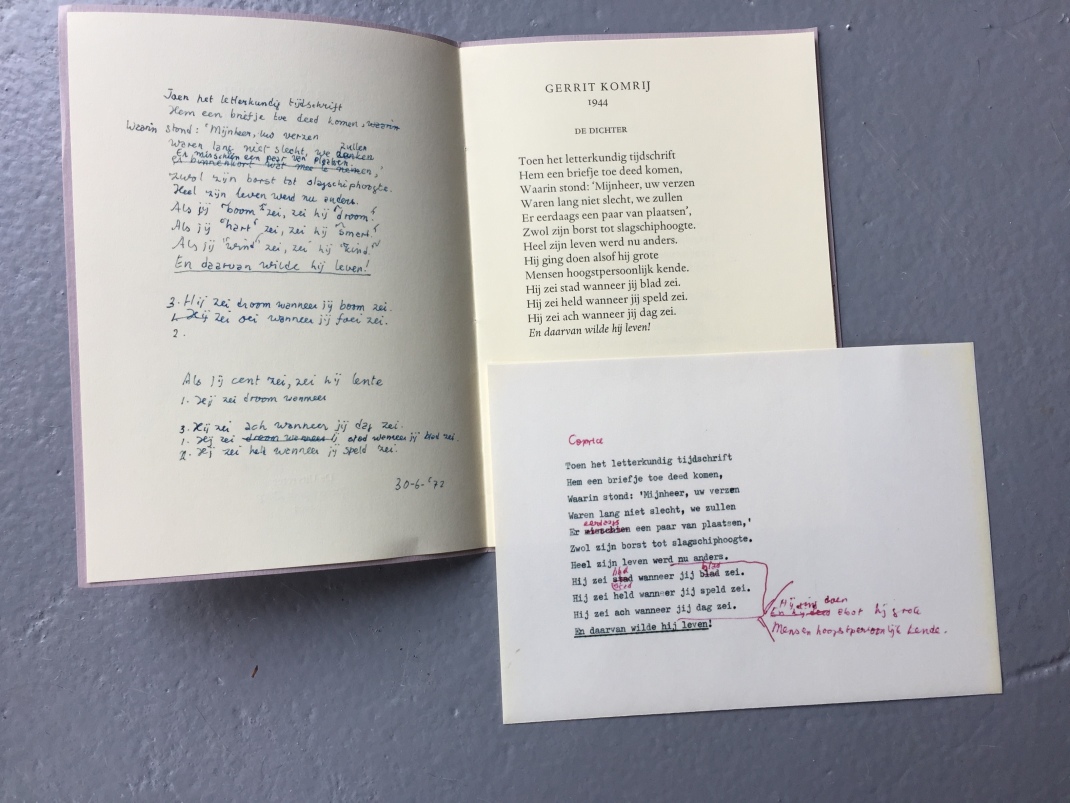 Toen het letterkundig tijdschrift
Hem een briefje toe deed komen, waarin
Waarin stond: 'Mijnheer, uw verzen
Waren lang niet slecht, we zullen
denken
Er misschien een paar van plaatsen,
En binnenkort wat mee te nemen,'
Zwol zijn borst tot slagschiphoogte.
Heel zijn leven werd nu anders.
Als jij "boom" zei, zei hij "droom".
Als jij "hart" zei, zei hij "smart".
Als jij "wind" zei, zei hij "kind."
En daarvan wilde hij leven!
3. Hij zei droom wanneer jij boom zei.
1. Hij zei oei wanneer jij foei zei.
2.
Als jij cent zei, zei hij lente
1. Hij zei droom wanneer
3. Hij zei ach wanneer jij dag zei.
1. Hij zei droom wanneer jij stad wanneer jij blad zei.
2. Hij zei held wanneer jij speld zei.
30-6-'72
GERRIT KOMRIJ
1944
DE DICHTER
Toen het letterkundig tijdschrift
Hem een briefje toe deed komen,
Waarin stond: 'Mijnheer, uw verzen
Waren lang niet slecht, we zullen
Er eerdaags een paar van plaatsen',
Zwol zijn borst tot slagschiphoogte.
Heel zijn leven werd nu anders.
Hij ging doen alsof hij grote
Mensen hoogstpersoonlijk kende.
Hij zei stad wanneer jij blad zei.
Hij zei held wanneer jij speld zei.
Hij zei ach wanneer jij dag zei.
En daarvan wilde hij leven!
Caprice
Toen het letterkundig tijdschrift
Hem een briefje toe deed komen,
Waarin stond: 'Mijnheer, uw verzen
Waren lang niet slecht, we zullen
eerdaags
Er misschien een paar van plaatsen,'
Zwol zijn borst tot slagschiphoogte.
Heel zijn leven werd nu anders.
blad
Hij zei stad wanneer jij blad zei.
Hij zei held wanneer jij speld zei.
Hij zei ach wanneer jij dag zei.
En daarvan wilde hij leven!
Hij ging doen
hij grote
Mensen hoogstpersoonlijk kende.